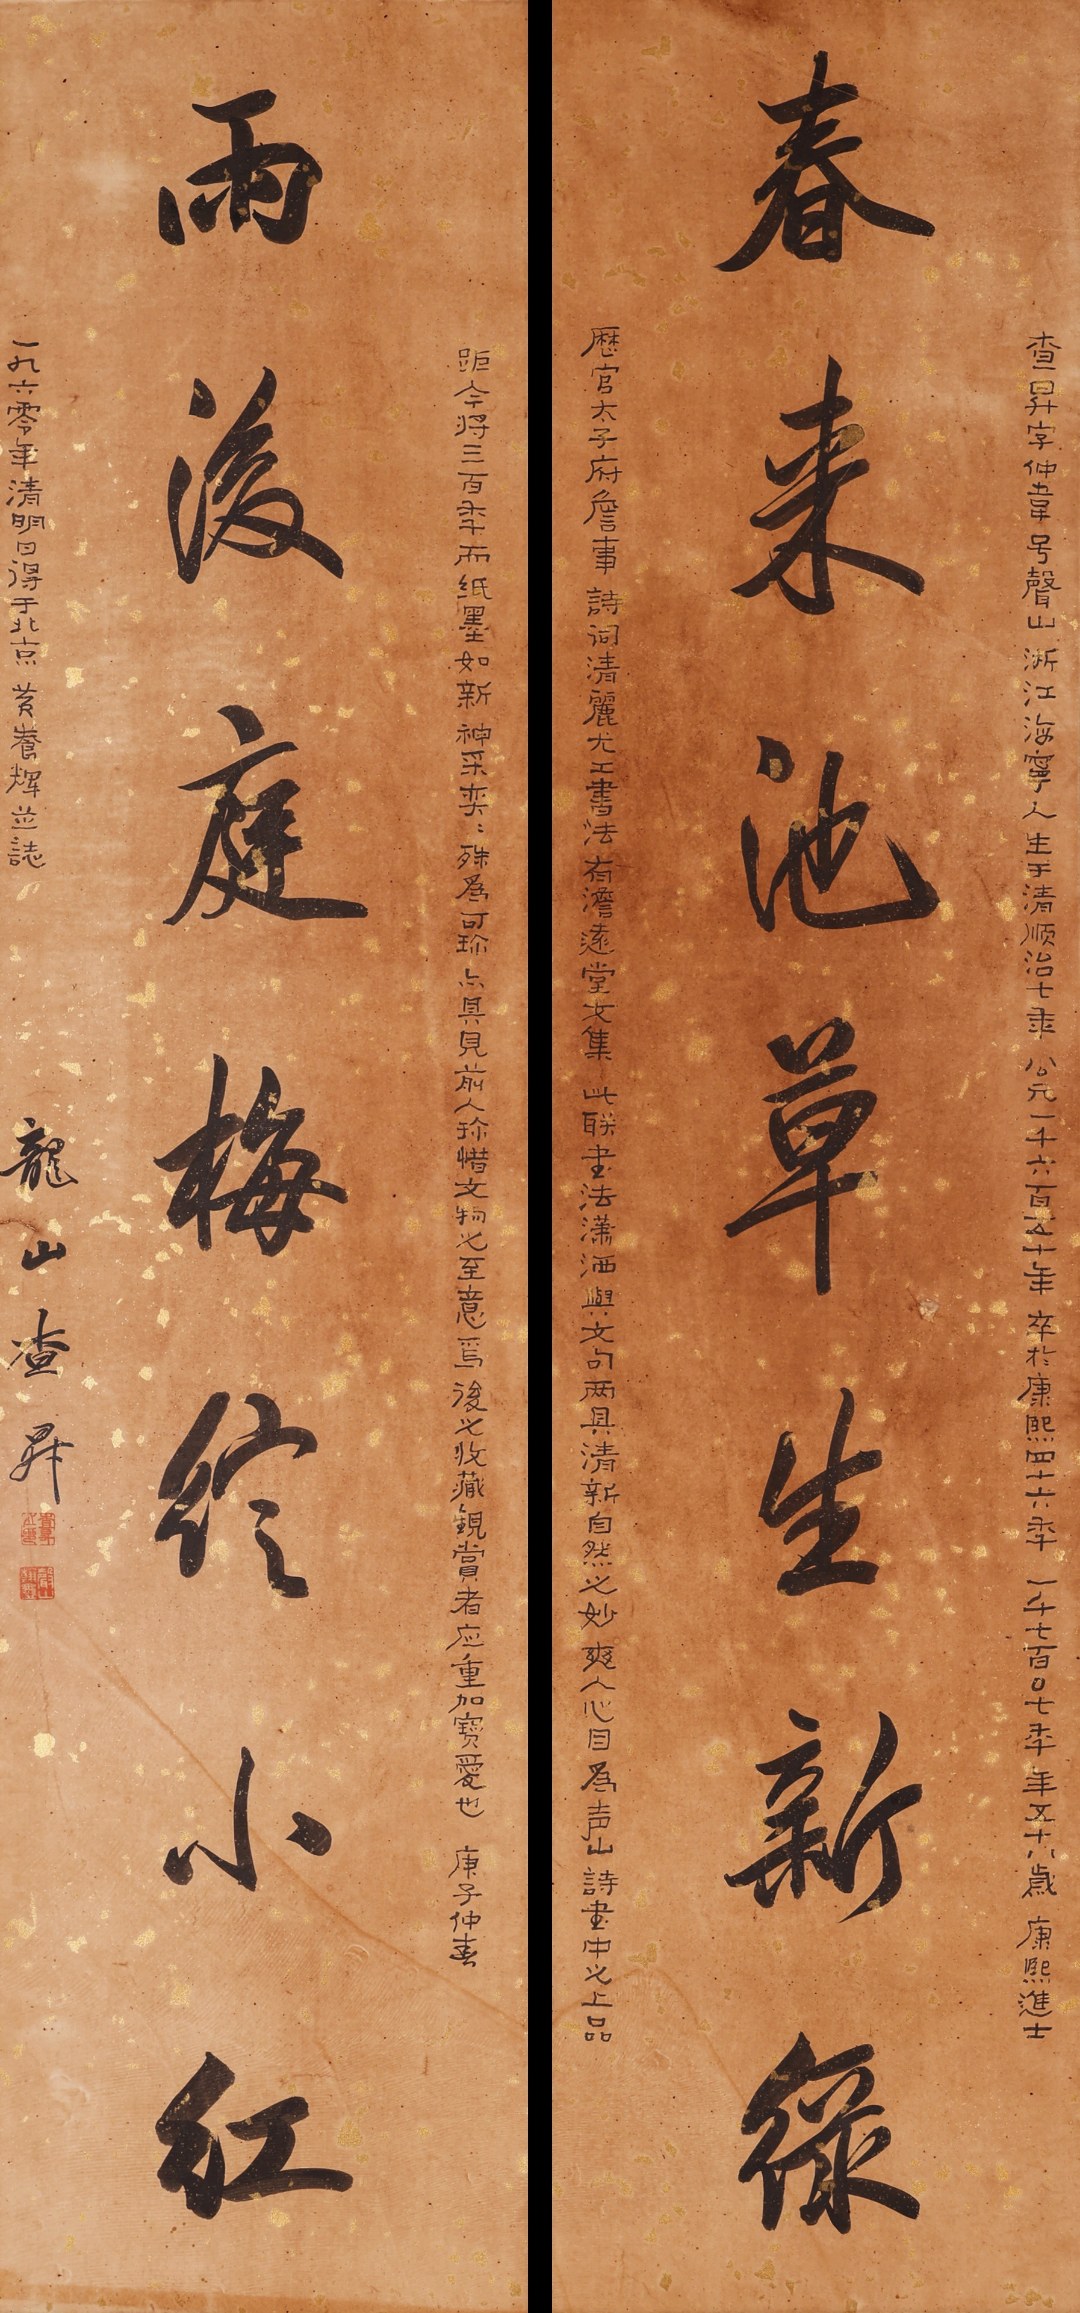 查昇字仲韋号聲山浙江海寧人生于清顺治七年公元一千六百五十年卒於康熙四十六年一千七百0七年年五十八歳康熙進士
春来池草生新綠
歷官太子府詹事詩词清麗尤工書法有澹遠堂文集此联書法潇洒與文句两具清新自然之妙爽人心目為声山詩書中之上品
距今将三百年而纸墨如新神采奕〻殊為可珍亦具見前人珍惜文物之至意焉後之收藏観賞者应重加寶愛也庚子仲春
雨後庭梅綻小红
一九六零年清明日得于北京黄養輝並誌
龍山查昇